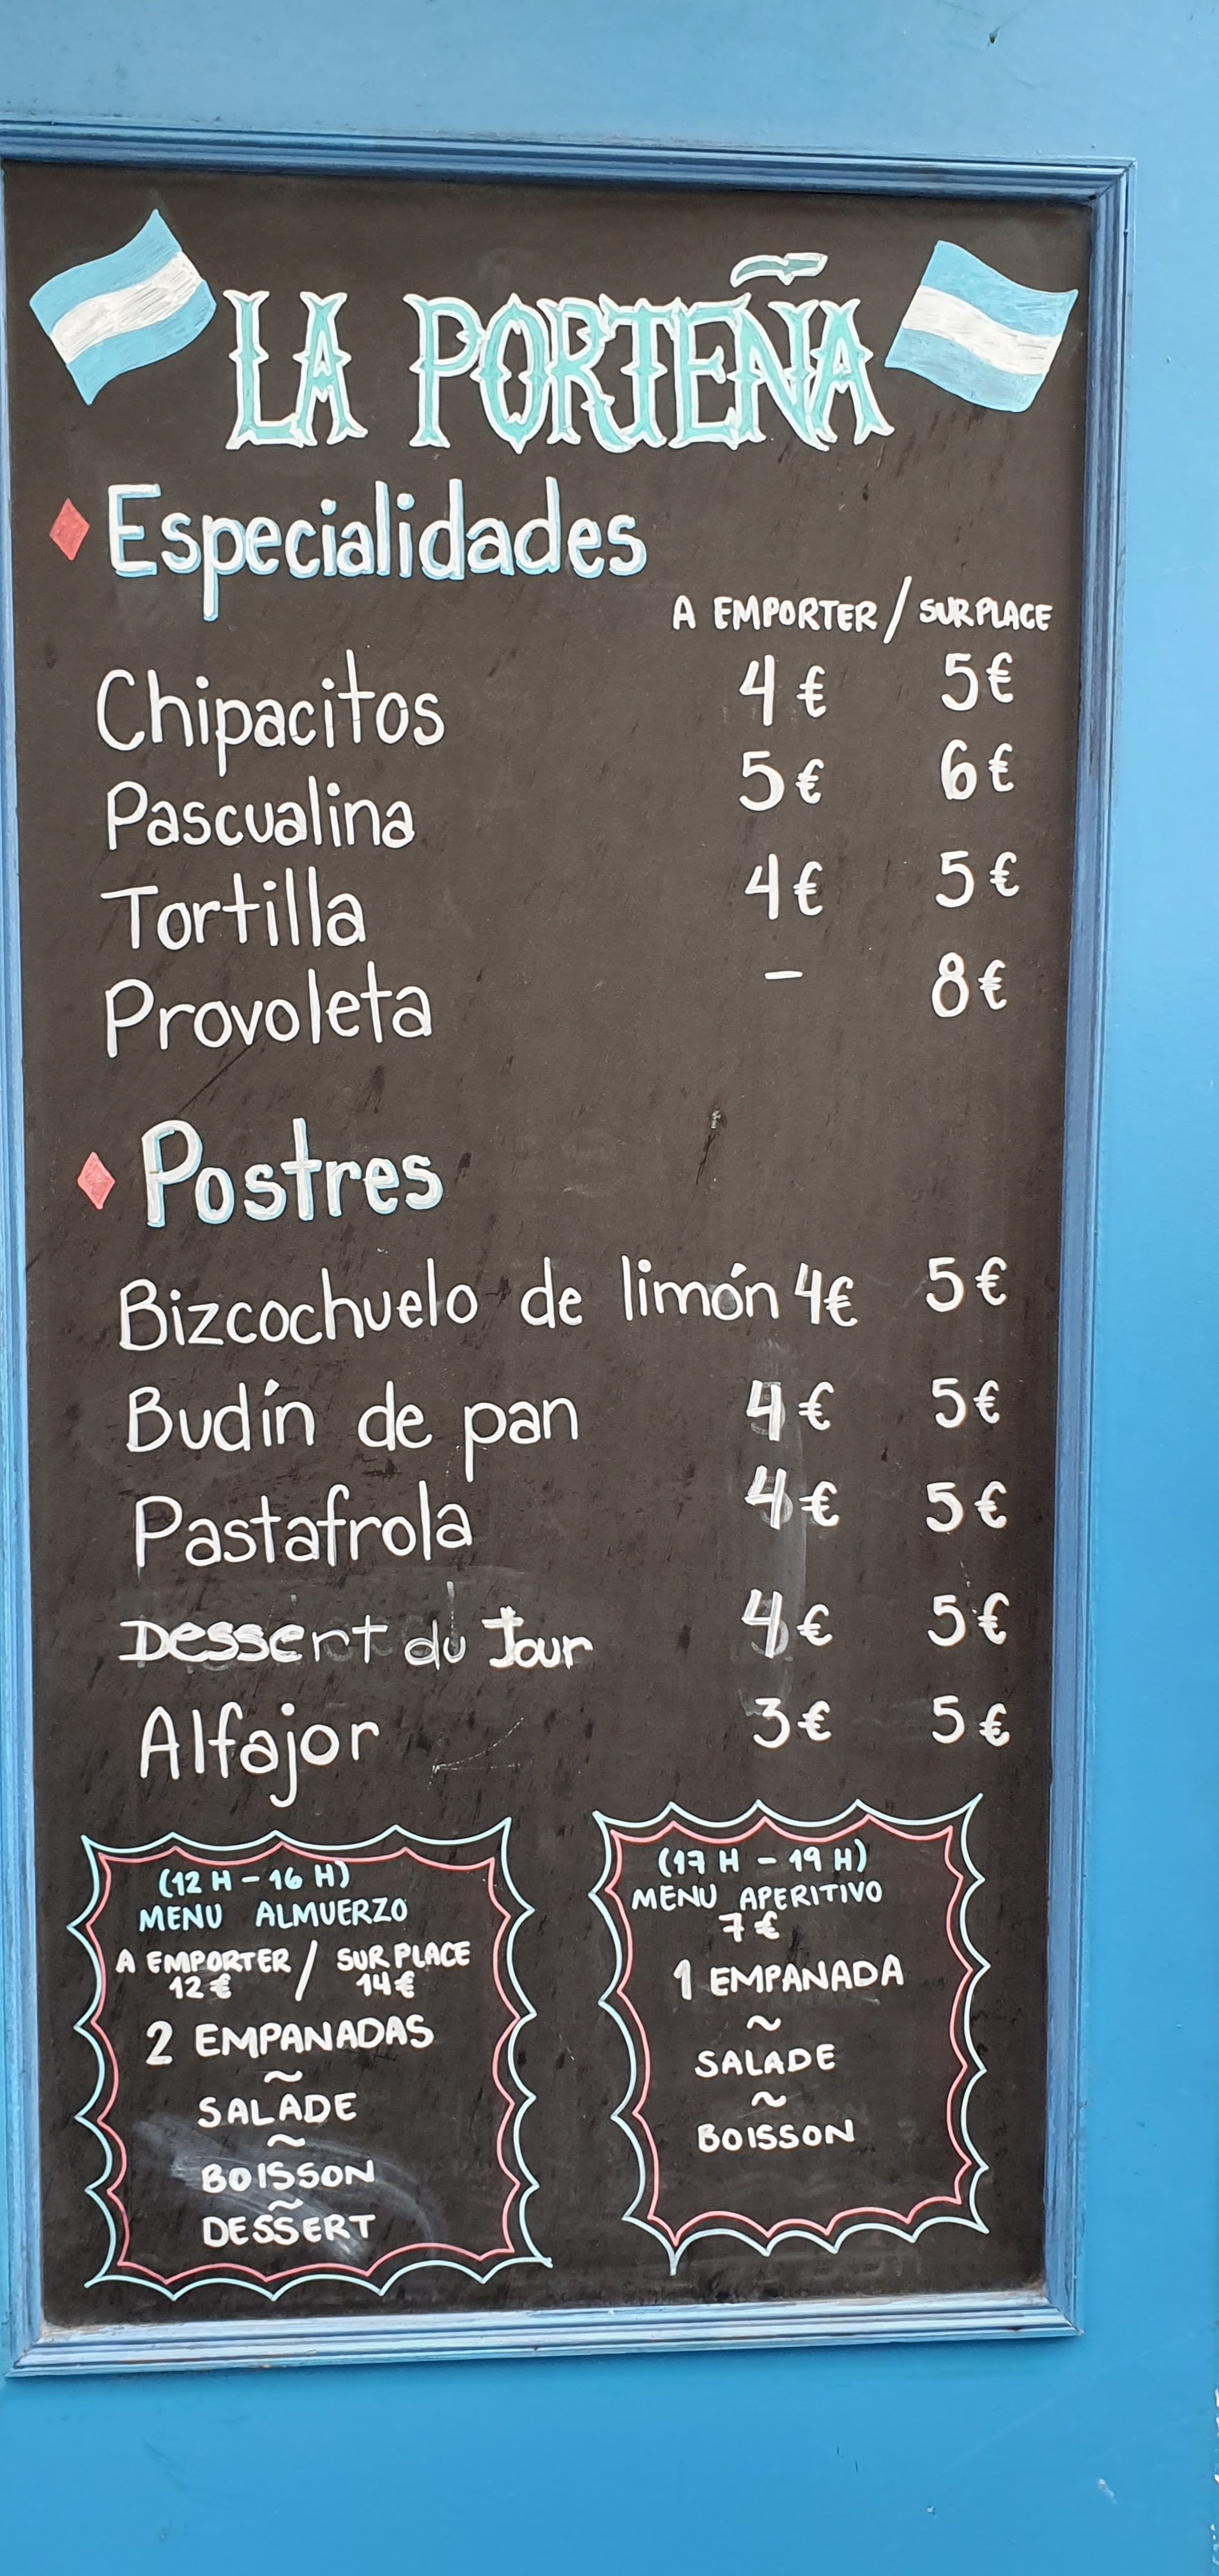 LA PORTEÑA
Especialidades
A EMPORTER / SUR PLACE
Chipacitos 4€ 5€
Pascualina 5€ 6€
Tortilla 4€ 5€
Provoleta - 8€
Postres
Bizcochuelo de limón 4€ 5€
Budín de pan 4€ 5€
Pastafrola 4€ 5€
Dessert du Jour 4€ 5€
Alfajor 3€ 5€
(12 H - 16 H)
MENU ALMUERZO
A EMPORTER / SUR PLACE
12€ 14€
2 EMPANADAS
~
SALADE
~
BOISSON
~
DESSERT
(17 H - 19 H)
MENU APERITIVO
7€
1 EMPANADA
~
SALADE
~
BOISSON